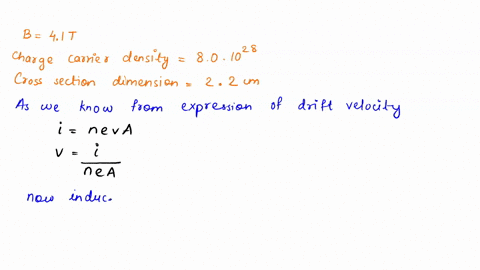 B = 4.1 T
Charge carrier density = 8.0 . 10^28
Cross section dimension = 2.2 cm
As we know from expression of drift velocity
i = nevA
v = i / neA
now induc.